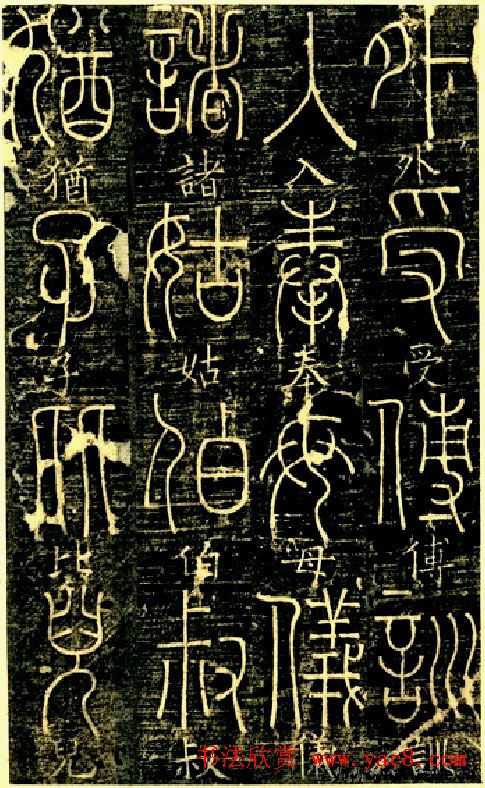 外受傅訓
外受傅訓
入奉母儀
入奉母儀
諸姑伯叔
諸姑伯叔
猶子比兒
猶子比兒
书法欣赏 www.yac8.com